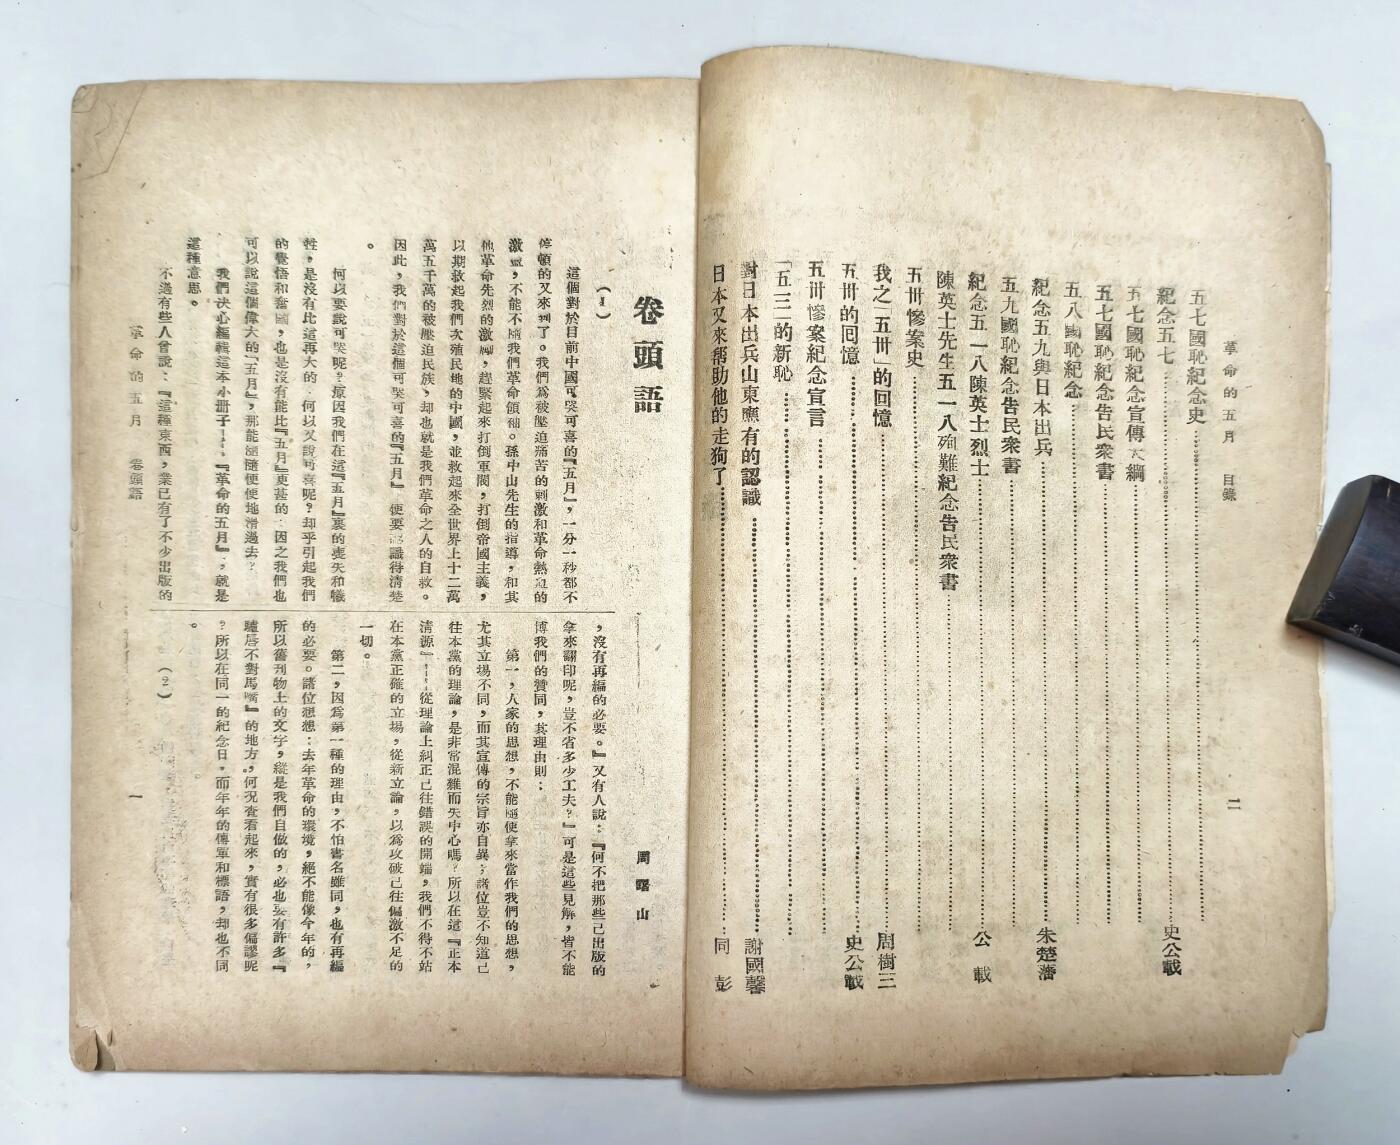 革命的五月 目錄
二
五七國恥紀念史
紀念五七 史公載
五七國恥紀念宣傳大綱
五七國恥紀念告民衆書
五八國恥紀念
紀念五九與日本出兵 朱楚藩
五九國恥紀念告民衆書
紀念五一八陳英士烈士 公載
陳英士先生五一八殉難紀念告民衆書
五卅慘案史
我之「五卅」的回憶 周樹三
五卅的囘憶 史公載
五卅慘案紀念宣言
「五三」的新恥
對日本出兵山東應有的認識 謝國馨
日本又來幫助他的走狗了 同
卷頭語
周曙山
(1)
這個對於目前中國可哭可喜的『五月』,一分一秒都不
停頓的又來到了。我們爲被壓迫痛苦的刺激和革命熱血的
激盪,不能不隨我們革命領袖。孫中山先生的指導,和其
他革命先烈的激勵,趕緊起來打倒軍閥,打倒帝國主義,
以期救起我們次殖民地的中國,並救起來全世界上十二萬
萬五千萬的被壓迫民族,却也就是我們革命之人的自救。
因此,我們對於這個可哭可喜的『五月』便要認識得清楚
。
何以要說可哭呢?原因我們在這『五月』裏的喪失和犧
牲,是沒有比這再大的。何以又說可喜呢?却乎引起我們
的覺悟和奮鬪,也是沒有能比『五月』更甚的。因之我們也
可以說這個偉大的『五月』,那能隨隨便便地滑過去?
我們決心編輯這本小册子——『革命的五月』,就是
這種意思。
不過有些人曾說:『這種東西,業已有了不少出版的
,沒有再編的必要。』又有人說:『何不把那些已出版的
拿來翻印呢,豈不省多少工夫?』可是這些見解,皆不能
博我們的贊同,其理由則:
第一,人家的思想,不能隨便拿來當作我們的思想,
尤其立場不同,而其宣傳的宗旨亦自異;諸位豈不知道已
往本黨的理論,是非常混雜而失中心嗎?所以在這『正本
清源』——從理論上糾正已往錯誤的開端,我們不得不站
在本黨正確的立場,從新立論,以爲攻破已往偏激不足的
一切。
第二,因爲第一種的理由,不怕書名雖同,也有再編
的必要。諸位想想:去年革命的環境,絕不能像今年的,
所以舊刊物上的文字,縱是我們自做的,必也要有許多『
驢唇不對馬嘴』的地方,何況查看起來,實有很多偏謬呢
?所以在同一的紀念日,而年年的傳單和標語,却也不同
。
(2)
革命的五月 卷頭語
一